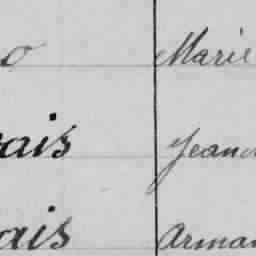 o Marie
ais Jeann
ais Arman